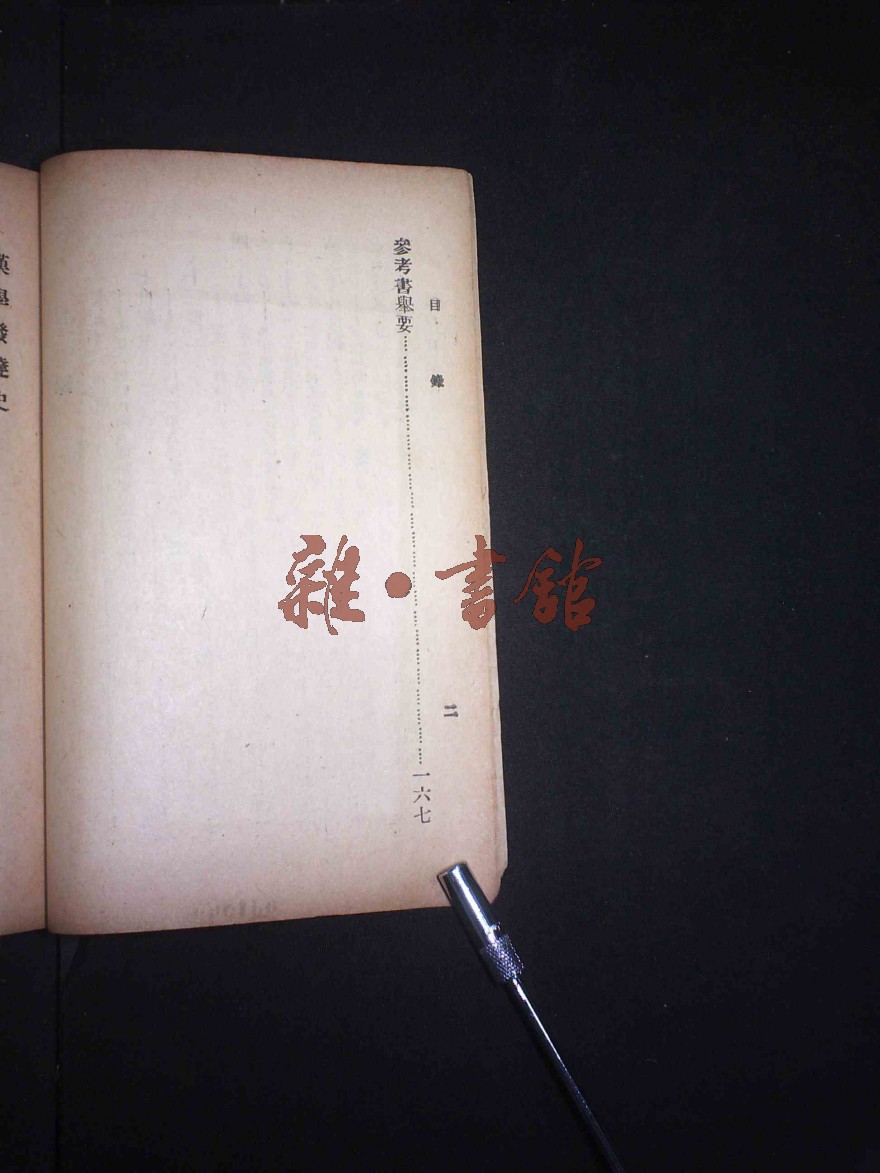 目錄
二
參考書舉要……一六七
漢學發達史
雜・書館